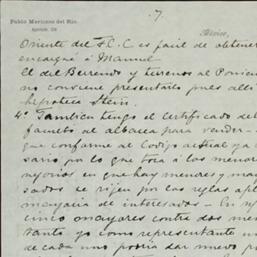 Pablo Martinez del Rio.
7
Oriente del F. C. es facil de obtener
encargué á Manuel
El del Berrendo y terrenos al Poniente
no conviene presentarlo pues alli
hipoteca Stein
4º Tambien tengo el Certificado del
al albacea para vender
que conforme al Codigo actual ya
sario por lo que toca á los menores
negocios en que hay menores y may
sados se rijen por las reglas apli
mayoria de interesados - En
cinco mayores contra dos men
tanto yo como representante un
de cada uno podria dar nuevo p